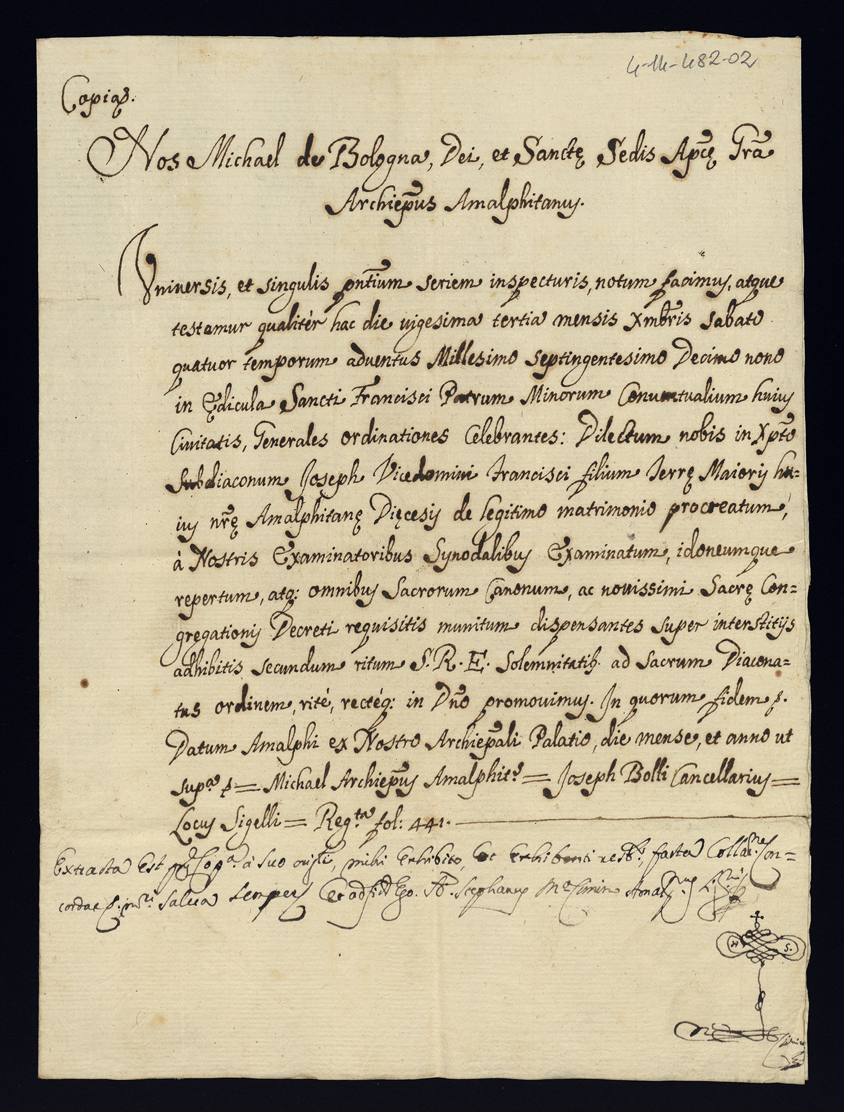 4-14-482-02
Copia &.
Nos Michael de Bologna, Dei, et Sanctę Sedis Apcę Gra
Archiepus Amalphitanus.
Universis, et singulis pntium seriem inspecturis, notum facimus, atque
testamur qualitér hac die vigesima tertia mensis Xmbris Sabato
quatuor temporum adventus Millesimo septingentesimo Decimo nono
in Ędicula Sancti Francisci Patrum Minorum Conventualium huius
Civitatis, Generales ordinationes Celebrantes: Dilectum nobis in Xpto
Subdiaconum Joseph Vicedomini Francisci filium Terrę Maiorij hu=
ius nrę Amalphitanę Dięcesis de legitimo matrimonio procreatum,
à Nostris Examinatoribus Synodalibus Examinatum, idoneumque
repertum, atq: omnibus Sacrorum Canonum, ac novissimi Sacrę Con=
gregationis Decreti requisitis munitum dispensantes super interstitijs
adhibitis secundum ritum S. R. E. Solemnitatib. ad Sacrum Diacona=
tus ordinem, rité, rectéq: in Dno promovimus. In quorum fidem &.
Datum Amalphi ex Nostro Archiepali Palatio, die mense, et anno ut
supa &= Michael Archiepus Amalphits = Joseph Bolli Cancellarius=
Locus Sigelli= Regta fol: 441.
Extracta est pns Copa à suo origli, mihi exhibito, et exhibenti restit. facta Collane Con=
cordat salva semper